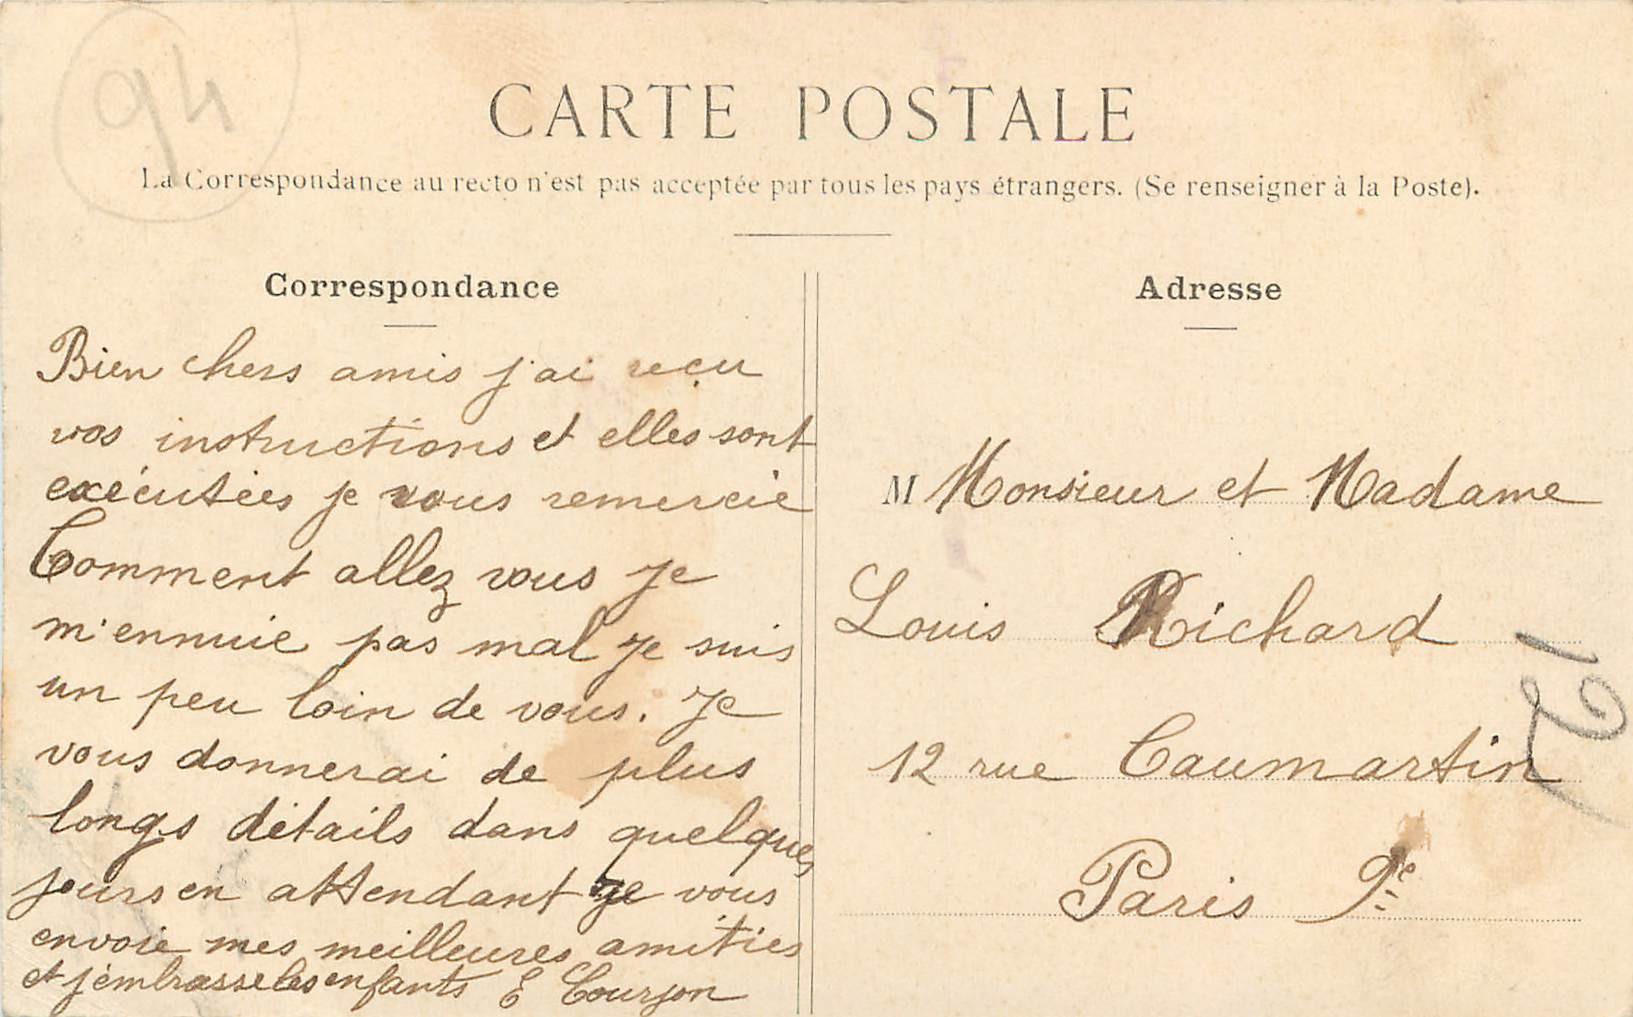 94
CARTE POSTALE
La Correspondance au recto n'est pas acceptée par tous les pays étrangers. (Se renseigner à la Poste).
Correspondance
Bien chers amis j'ai reçu
vos instructions et elles sont
exécutées je vous remercie
Comment allez vous je
m'ennuie pas mal je suis
un peu loin de vous. Je
vous donnerai de plus
longs détails dans quelques
jours en attendant je vous
envoie mes meilleures amitiés
et j'embrasse les enfants E Courjon
Adresse
M Monsieur et Madame
Louis Richard
12 rue Caumartin
Paris 9e